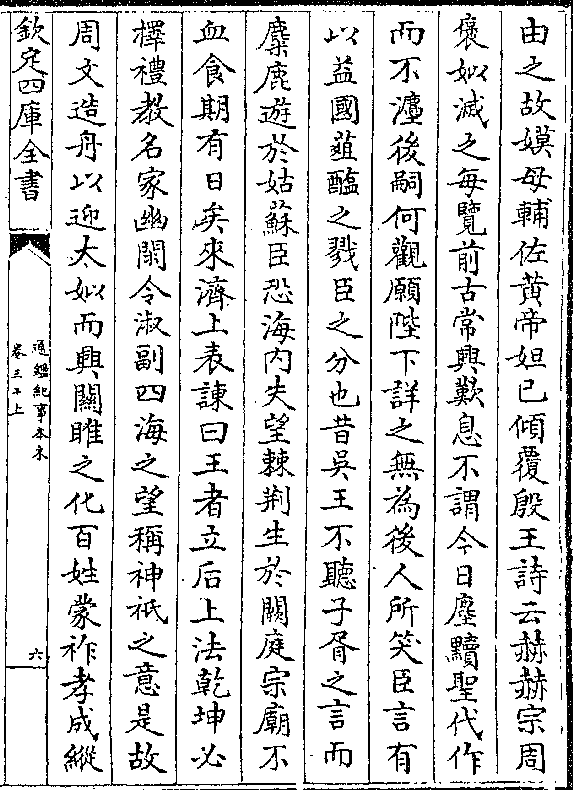 由之故嫫母輔佐黄帝妲己傾覆殷王詩云赫赫宗周
襃姒滅之每覽前古常興歎息不謂今日塵黷聖代作
而不灋後嗣何觀願陛下詳之無為後人所笑臣言有
以益國葅醢之戮臣之分也昔吳王不聽子胥之言而
麋鹿遊於姑蘇臣恐海内失望棘荆生於闕庭宗廟不
血食期有日矣來濟上表諫曰王者立后上法乾坤必
擇禮教名家幽閑令淑副四海之望稱神祇之意是故
周文造舟以迎太姒而興關雎之化百姓蒙祚孝成縱
欽定四庫全書
通鑑紀事本末
卷三十上
六